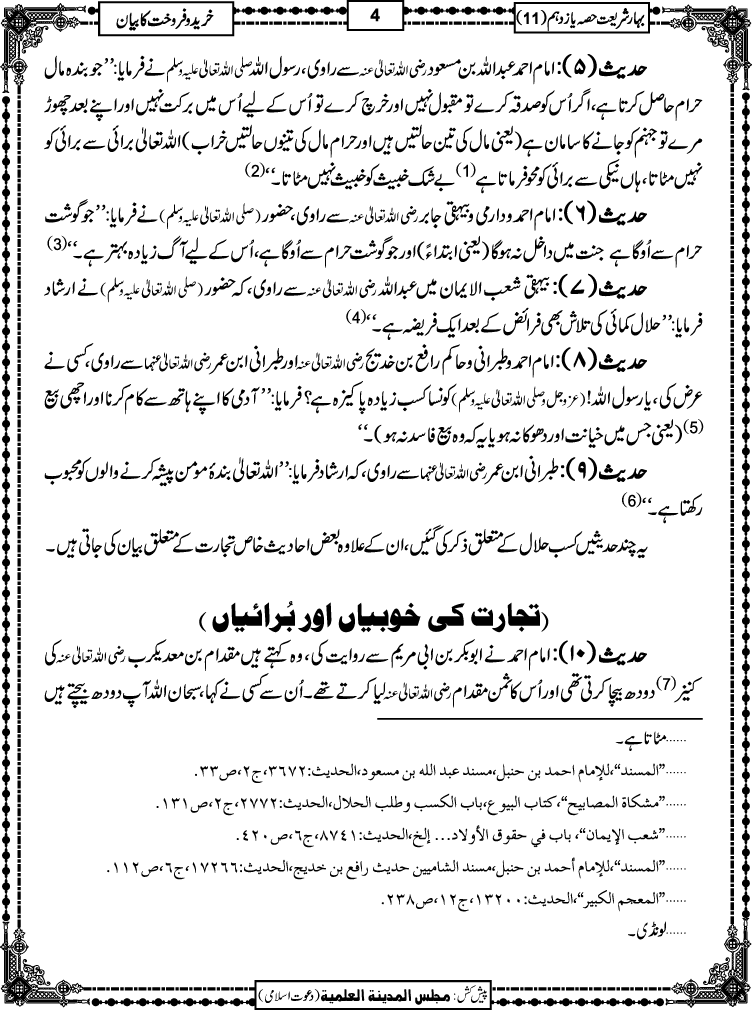 بہارِ شریعت حصہ یازدہم (11)
4
خرید و فروخت کا بیان
حدیث (۵): امام احمد عبداللہ بن مسعود رضی اللہ تعالیٰ عنہ سے راوی، رسول اللہ صلی اللہ تعالیٰ علیہ وسلم نے فرمایا: ’’جو بندہ مال
حرام حاصل کرتا ہے، اگر اُس کو صدقہ کرے تو مقبول نہیں اور خرچ کرے تو اُس کے لیے اُس میں برکت نہیں اور اپنے بعد چھوڑ
مرے تو جہنم کو جانے کا سامان ہے (یعنی مال کی تین حالتیں ہیں اور حرام مال کی تینوں حالتیں خراب) اللہ تعالیٰ برائی سے برائی کو
نہیں مٹاتا، ہاں نیکی سے برائی کو محو فرماتا ہے (1) بے شک خبیث کو خبیث نہیں مٹاتا۔‘‘ (2)
حدیث (۶): امام احمد و دارمی و بیہقی جابر رضی اللہ تعالیٰ عنہ سے راوی، حضور (صلی اللہ تعالیٰ علیہ وسلم) نے فرمایا: ’’جو گوشت
حرام سے اُوگا ہے جنت میں داخل نہ ہوگا (یعنی ابتداءً) اور جو گوشت حرام سے اُوگا ہے، اُس کے لیے آگ زیادہ بہتر ہے۔‘‘ (3)
حدیث (۷): بیہقی شعب الایمان میں عبداللہ رضی اللہ تعالیٰ عنہ سے راوی، کہ حضور (صلی اللہ تعالیٰ علیہ وسلم) نے ارشاد
فرمایا: ’’حلال کمائی کی تلاش بھی فرائض کے بعد ایک فریضہ ہے۔‘‘ (4)
حدیث (۸): امام احمد و طبرانی و حاکم رافع بن خدیج رضی اللہ تعالیٰ عنہ اور طبرانی ابن عمر رضی اللہ تعالیٰ عنہما سے راوی، کسی نے
عرض کی، یارسول اللہ! (عزوجل و صلی اللہ تعالیٰ علیہ وسلم) کونسا کسب زیادہ پاکیزہ ہے؟ فرمایا: ’’آدمی کا اپنے ہاتھ سے کام کرنا اور اچھی بیع
(5) (یعنی جس میں خیانت اور دھوکا نہ ہو یا یہ کہ وہ بیع فاسد نہ ہو)۔‘‘
حدیث (۹): طبرانی ابن عمر رضی اللہ تعالیٰ عنہما سے راوی، کہ ارشاد فرمایا: ’’اللہ تعالیٰ بندۂ مؤمن پیشہ کرنے والوں کو محبوب
رکھتا ہے۔‘‘ (6)
یہ چند حدیثیں کسب حلال کے متعلق ذکر کی گئیں، ان کے علاوہ بعض احادیث خاص تجارت کے متعلق بیان کی جاتی ہیں۔
(تجارت کی خوبیاں اور بُرائیاں)
حدیث (۱۰): امام احمد نے ابوبکر بن ابی مریم سے روایت کی، وہ کہتے ہیں مقدام بن معدیکرب رضی اللہ تعالیٰ عنہ کی
کنیز (7) دودھ بیچا کرتی تھی اور اُس کا ثمن مقدام رضی اللہ تعالیٰ عنہ لیا کرتے تھے۔ اُن سے کسی نے کہا، سبحان اللہ آپ دودھ بیچتے ہیں
......مٹاتا ہے۔
......’’المسند‘‘،للإمام احمد بن حنبل،مسند عبد الله بن مسعود،الحديث:٣٦٧٢،ج٢،ص٣٣.
......’’مشكاة المصابيح‘‘،كتاب البيوع،باب الكسب وطلب الحلال،الحديث:٢٧٧٢،ج٢،ص١٣١.
......’’شعب الإيمان‘‘، باب في حقوق الأولاد... إلخ،الحديث:٨٧٤١،ج٦،ص٤٢٠.
......’’المسند‘‘،للإمام أحمد بن حنبل،مسند الشاميين حديث رافع بن خديج،الحديث:١٧٢٦٦،ج٦،ص١١٢.
......’’المعجم الكبير‘‘،الحديث:١٣٢٠٠،ج١٢،ص٢٣٨.
......لونڈی۔
پیش کش: مجلس المدینة العلمیة (دعوت اسلامی)